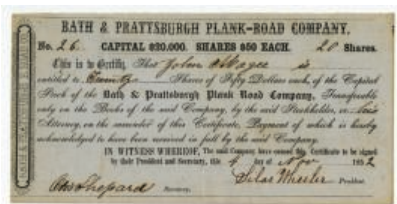 BATH & PRATTSBURGH PLANK-ROAD COMPANY.
No. 26. CAPITAL $20,000. SHARES $50 EACH. 20 Shares.
This is to Certify, That John Magee is
entitled to Twenty Shares of Fifty Dollars each, of the Capital
Stock of the Bath & Prattsburgh Plank Road Company, Transferable
only on the Books of the said Company, by the said Stockholder, or his
Attorney, on the surrender of this Certificate, Payment of which is hereby
acknowledged to have been received in full by the said Company.
IN WITNESS WHEREOF, The said Company have caused this Certificate to be signed
by their President and Secretary, this 4 day of Nov 1852
Secretary. Silas Wheeler President.